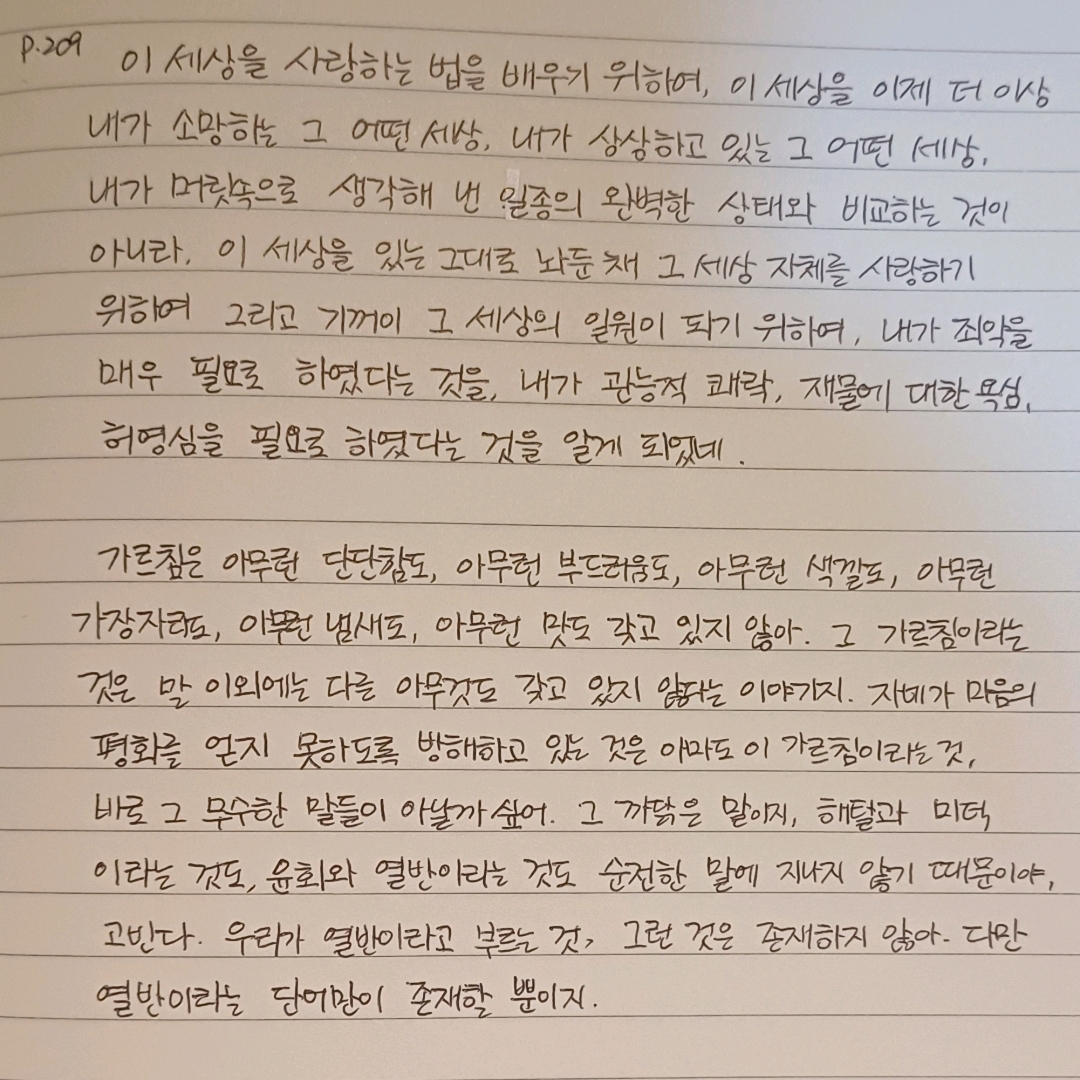 p.209 이 세상을 사랑하는 법을 배우기 위하여, 이 세상을 이제 더 이상
내가 소망하는 그 어떤 세상, 내가 상상하고 있는 그 어떤 세상,
내가 머릿속으로 생각해 낸 일종의 완벽한 상태와 비교하는 것이
아니라, 이 세상을 있는 그대로 놔둔 채 그 세상 자체를 사랑하기
위하여 그리고 기꺼이 그 세상의 일원이 되기 위하여, 내가 죄악을
매우 필요로 하였다는 것을, 내가 관능적 쾌락, 재물에 대한 욕심,
허영심을 필요로 하였다는 것을 알게 되었네.
가르침은 아무런 단단함도, 아무런 부드러움도, 아무런 색깔도, 아무런
가장자리도, 아무런 냄새도, 아무런 맛도 갖고 있지 않아. 그 가르침이라는
것은 말 이외에는 다른 아무것도 갖고 있지 않다는 이야기지. 자네가 마음의
평화를 얻지 못하도록 방해하고 있는 것은 아마도 이 가르침이라는 것,
바로 그 무수한 말들이 아닐까 싶어. 그 까닭은 말이지, 해탈과 미덕
이라는 것도, 윤회와 열반이라는 것도 순전한 말에 지나지 않기 때문이야,
고빈다. 우리가 열반이라고 부르는 것, 그런 것은 존재하지 않아. 다만
열반이라는 단어만이 존재할 뿐이지.